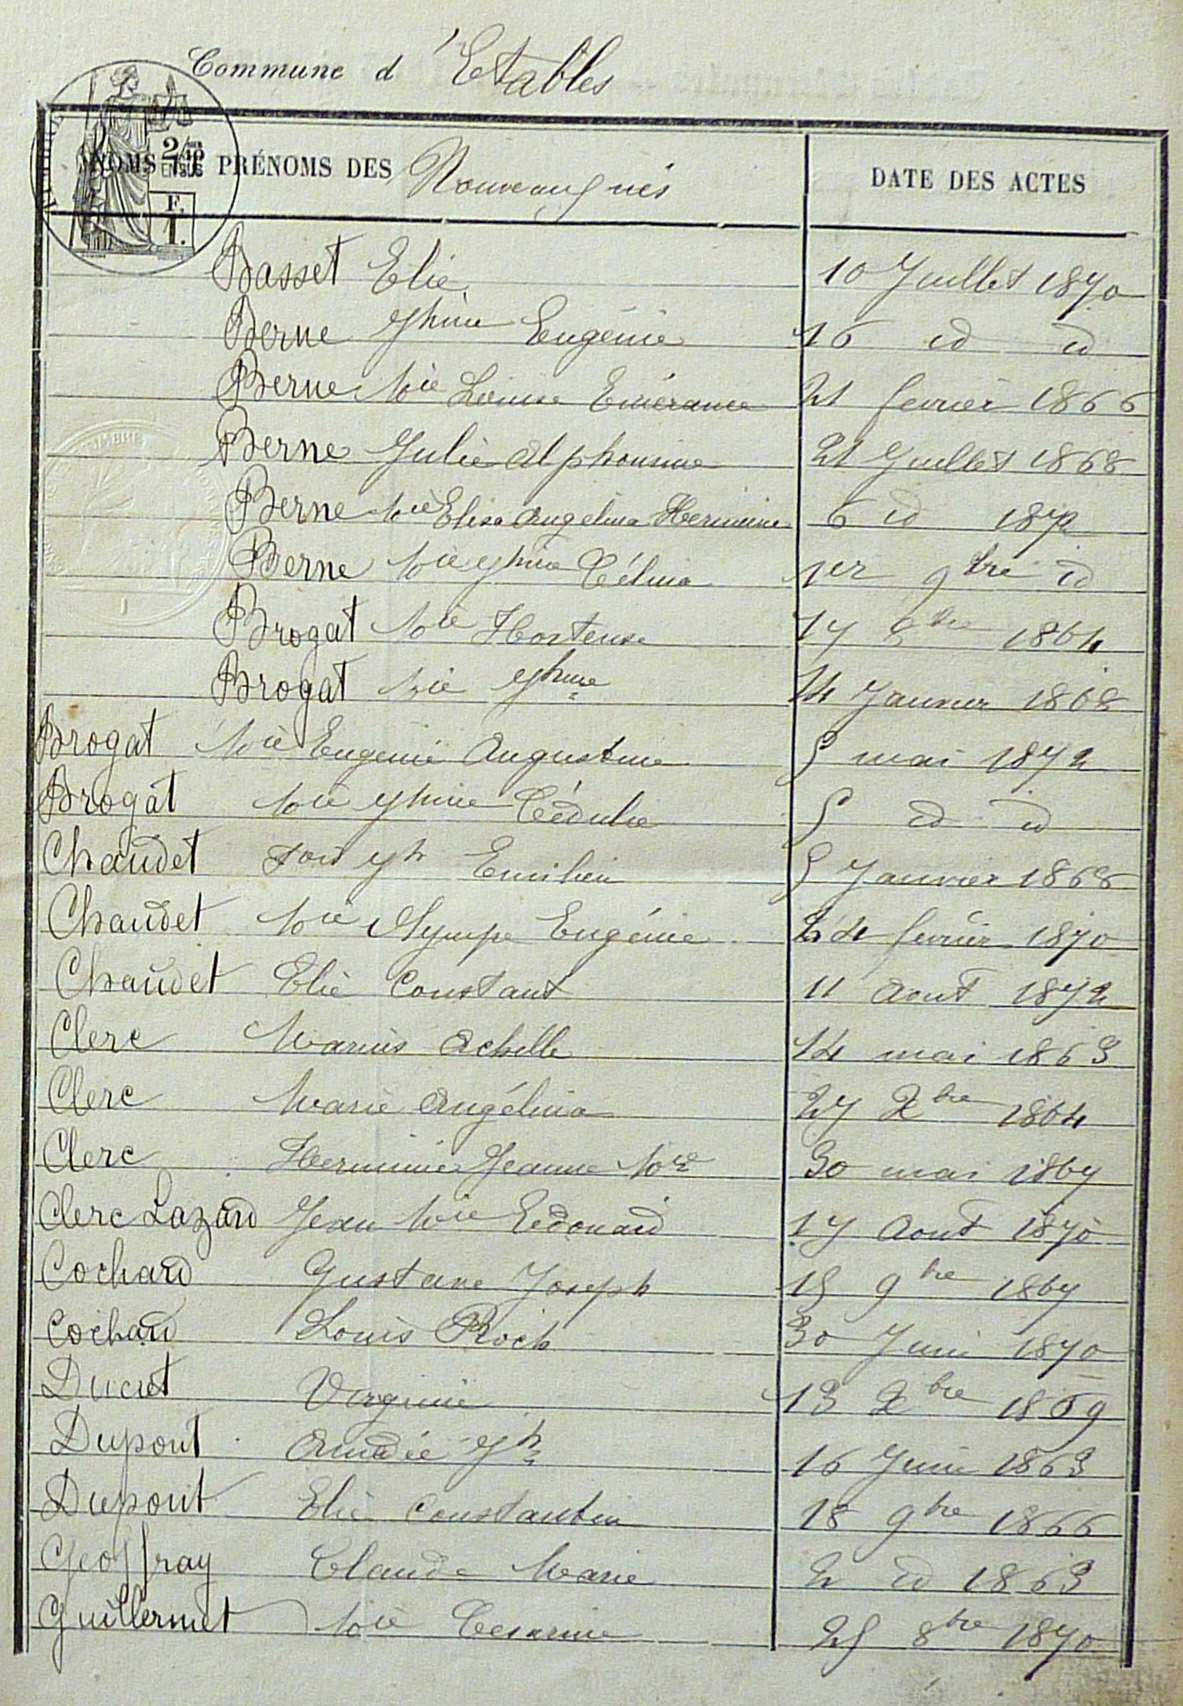 Commune d'Etables
NOMS ET PRÉNOMS DES Nouveaux nés DATE DES ACTES
2/10 EN SUS
F.
1.
Basset Elie 10 Juillet 1870
Berne Jhine Eugénie 16 id id
Berne Mie Louise Emérance 21 fevrier 1866
Berne Julie Alphonsine 21 Juillet 1868
Berne Mie Elisa Angelina Herminie 6 id 1872
Berne Mie Jhine Célina 1er 9bre id
Brogat Mie Hortense 17 8bre 1864
Brogat Mie Jhine 14 Janvier 1868
Brogat Mie Eugenie Augustine 5 mai 1872
Brogat Mie Jhine Cédulie 5 id id
Chaudet Fois Jh Emilien 5 Janvier 1868
Chaudet Mie Olympe Eugénie 24 fevrier 1870
Chaudet Elie Constant 11 Aout 1872
Clerc Marius Achille 14 mai 1863
Clerc Marie Angélina 27 Xbre 1864
Clerc Herminie Jeanne Mie 30 mai 1867
Clerc Lazard Jean Mie Edouard 17 Aout 1870
Cochard Gustave Joseph 15 9bre 1867
Cochard Louis Roch 30 Juin 1870
Ducret Virginie 13 Xbre 1869
Dupont Amédée Jh 16 Juin 1863
Dupont Elie Constantin 18 9bre 1866
Geoffray Claude Marie 2 id 1863
Guillermet Mie Cesarine 25 8bre 1870